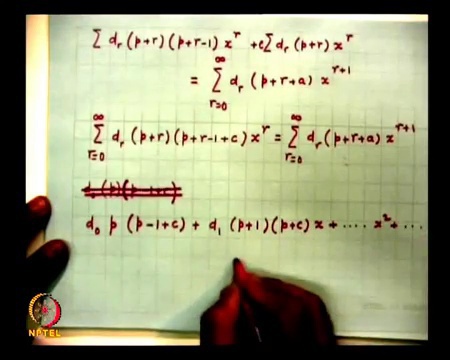 ∑ d_r (p+r) (p+r-1) x^r + c ∑ d_r (p+r) x^r
= ∑_{r=0}^{∞} d_r (p+r+a) x^{r+1}
∑_{r=0}^{∞} d_r (p+r) (p+r-1+c) x^r = ∑_{r=0}^{∞} d_r (p+r+a) x^{r+1}
d_0 p (p-1+c) + d_1 (p+1) (p+c) x + .... x^2 + ...
NPTEL